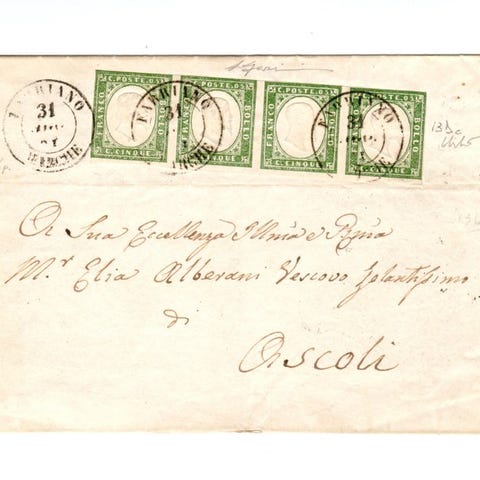 FABRIANO
31
MARCHE
C. POSTE. 05
FRANCO
BOLLO
C. CINQUE
C. POSTE. 05
FRANCO
BOLLO
C. CINQUE
FABRIANO
31
MARCHE
C. POSTE. 05
FRANCO
BOLLO
C. CINQUE
C. POSTE. 05
FRANCO
BOLLO
C. CINQUE
13Da
A Sua Eccellenza Illma e Rma
Mr. Elia Alberani Vescovo Zelantissimo
di
Ascoli